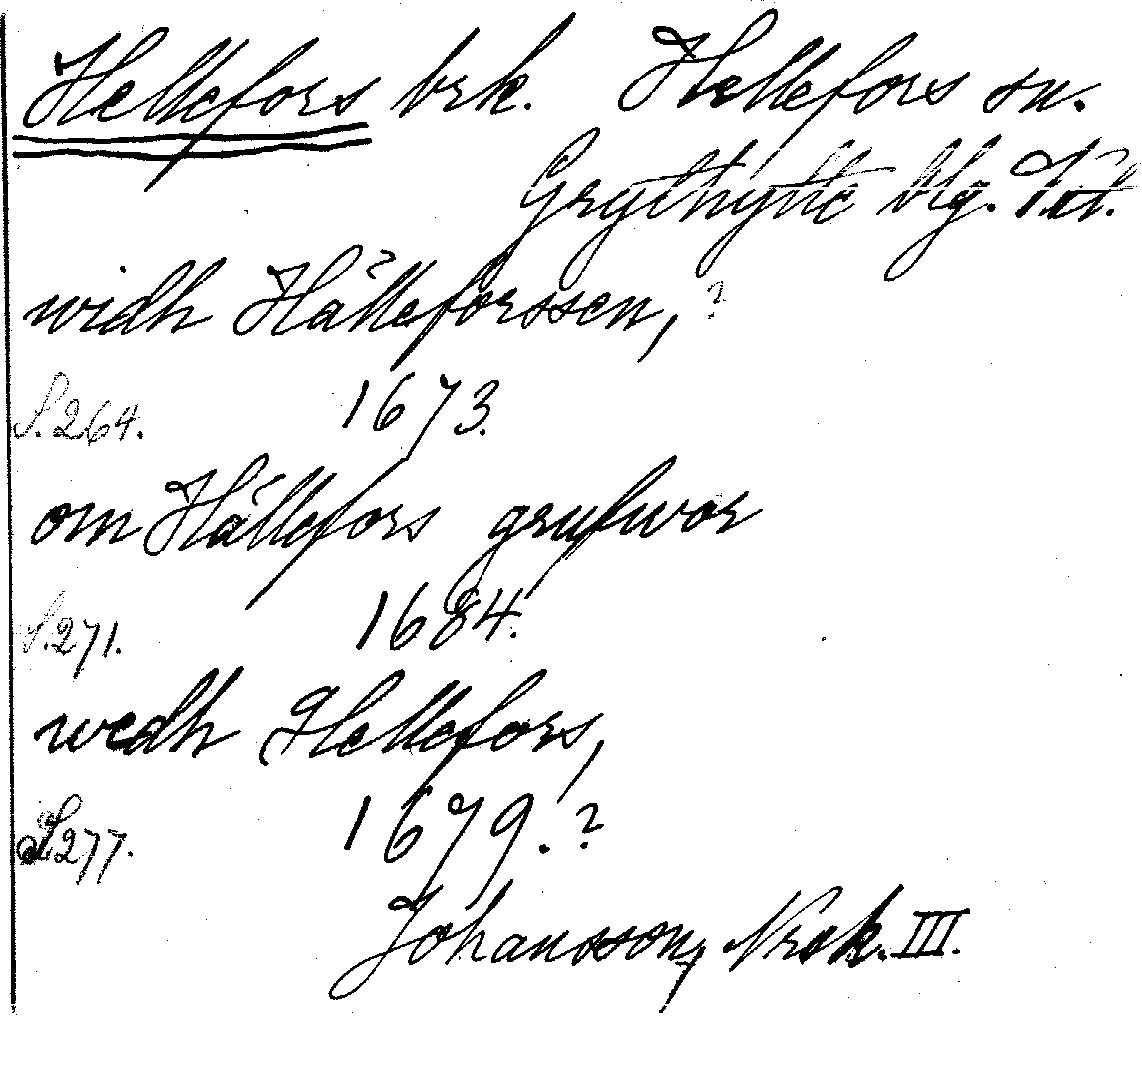 Hellefors brk. Hellefors sn.
Grythytte blg. Vstl.
widh Hälleforssen, ?
S. 264. 1673.
om Hällefors grufwor
S. 271. 1684.
wedh Hellefors,
S. 277. 1679. ?
Johansson, Nrsk. III.